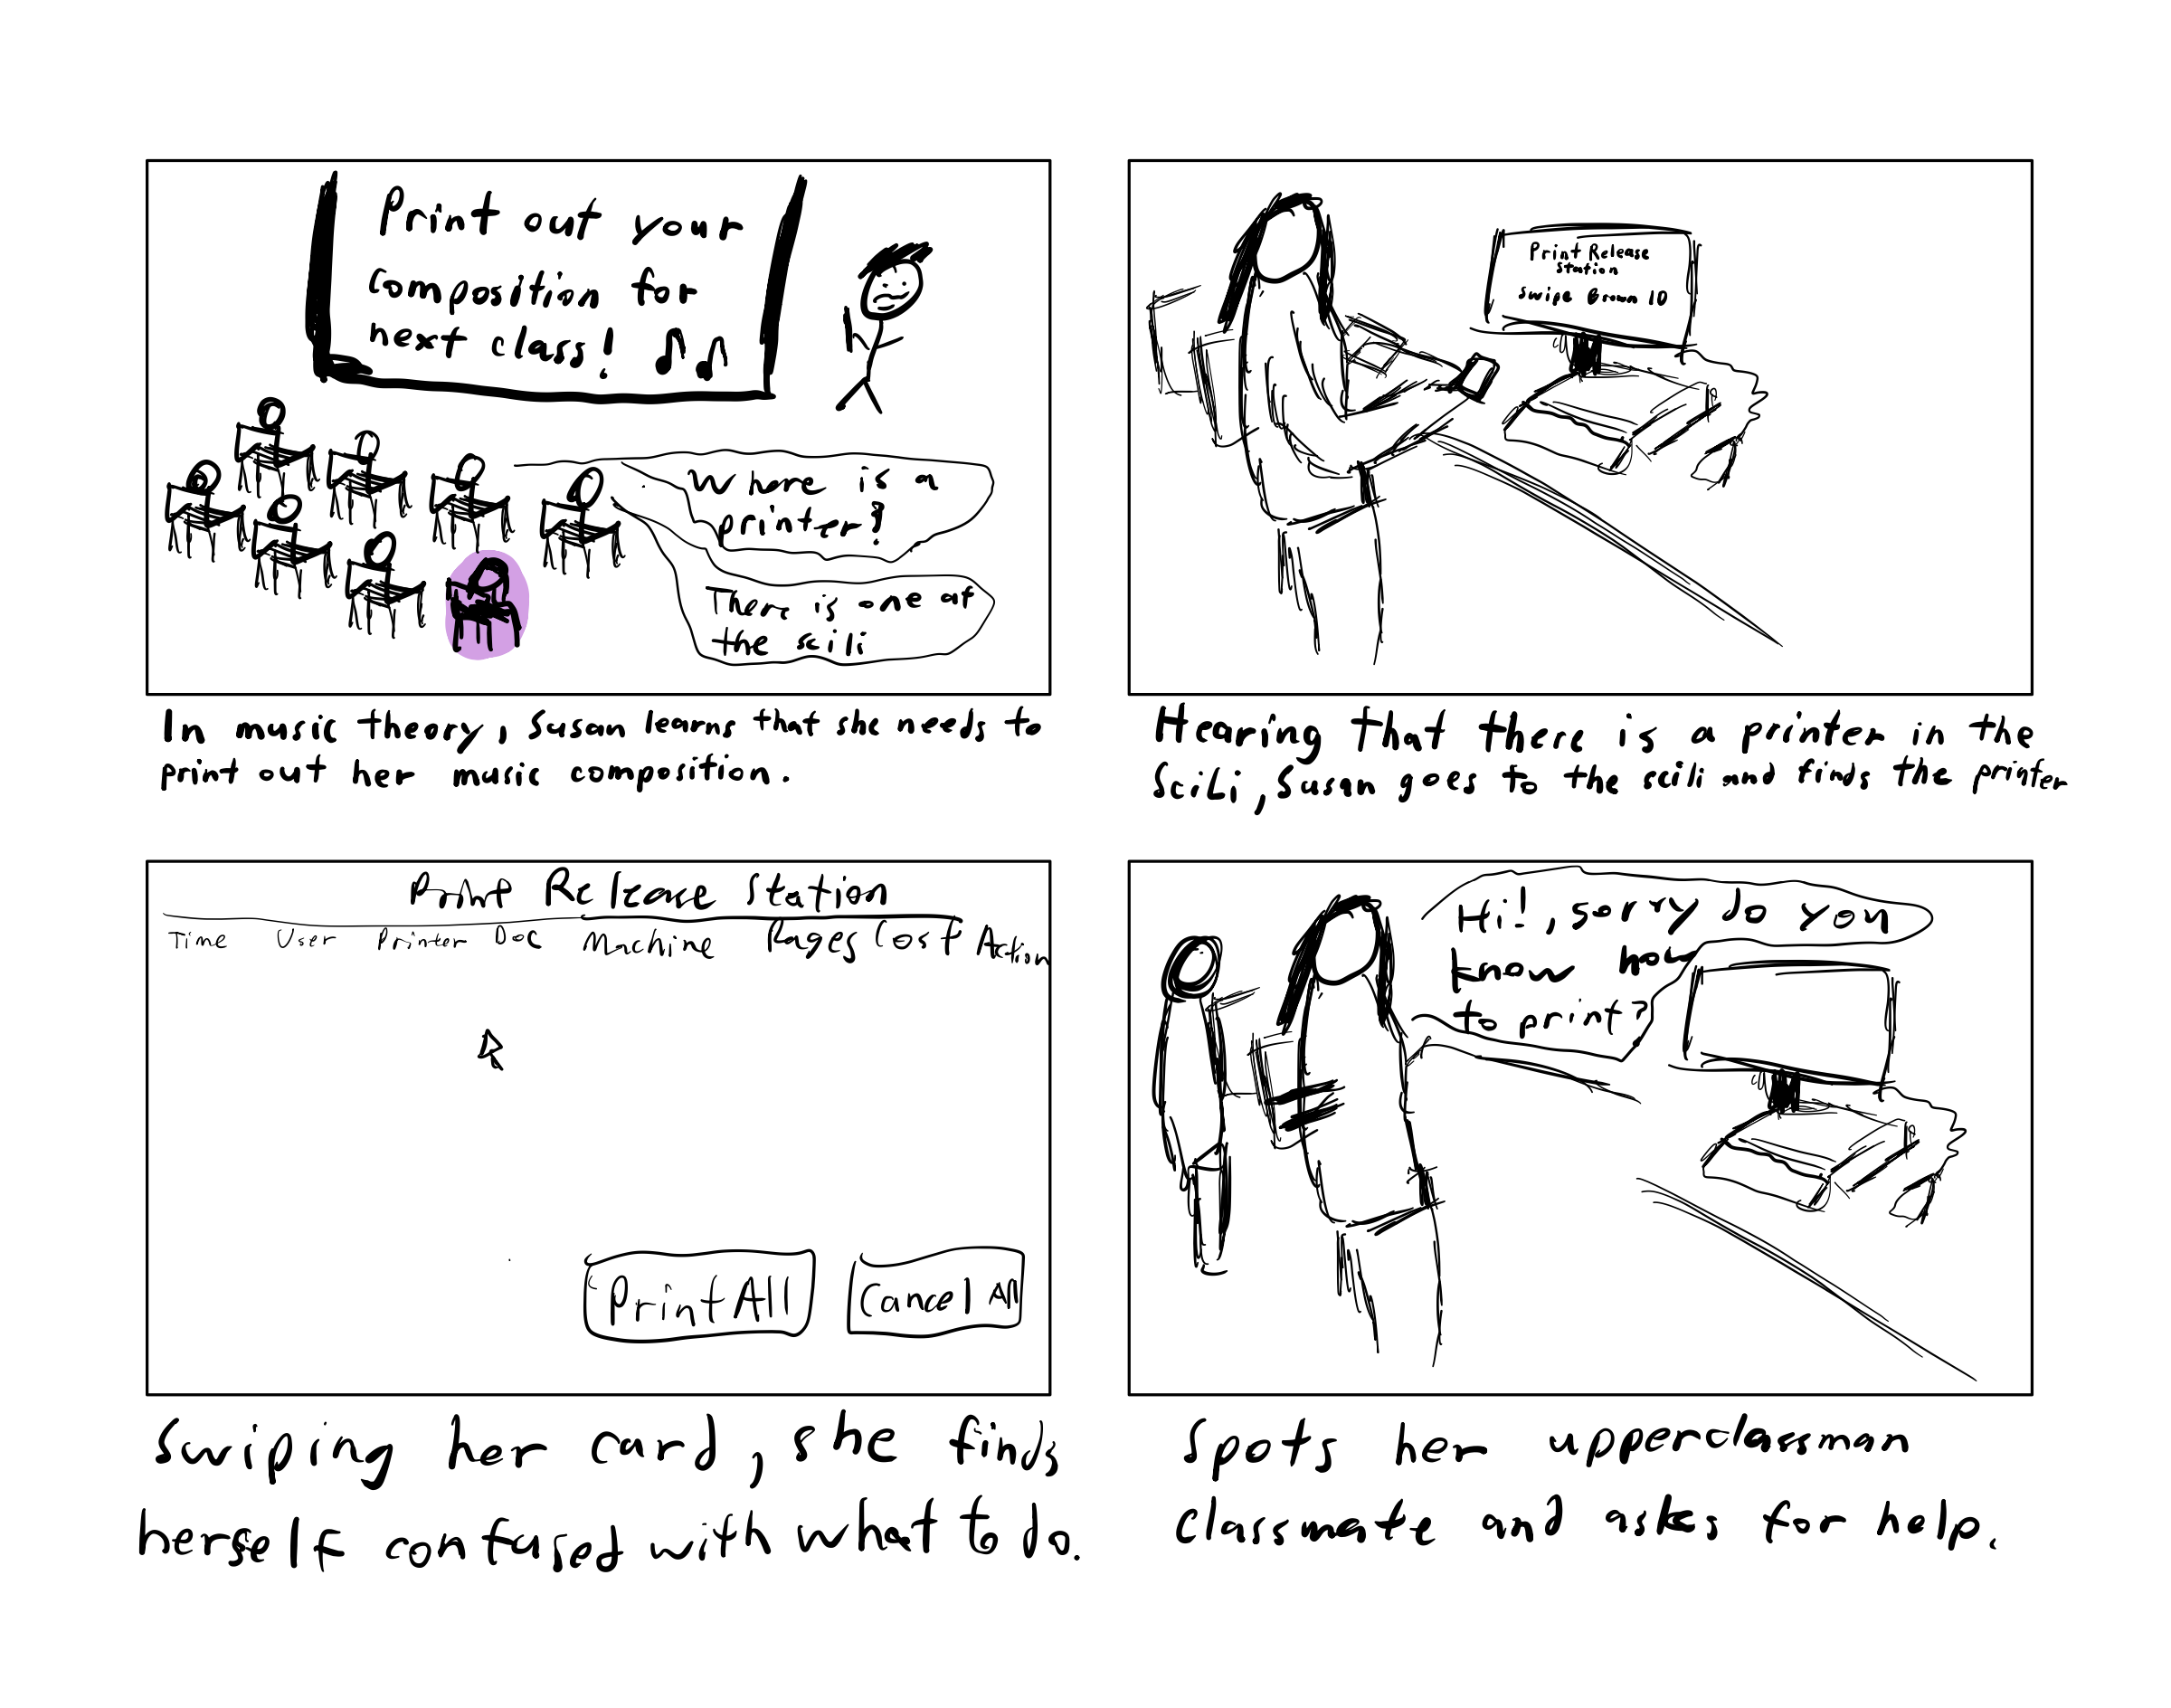 Print out your
composition for
next class!
Where is a
printer?
There is one at
the scili
In music theory, Susan learns that she needs to
print out her music composition.
Print Release
Station
Swipe Brown ID
Hearing that there is a printer in the
SciLi, Susan goes to the scili and finds the printer
Print Release Station
Time User Printer Doc Machine Pages Cost Action
Print All Cancel All
Swiping her card, she finds
herself confused with what to do.
Hi!, sorry do you
know how
to print?
Spots her upperclassman
classmate and asks for help.